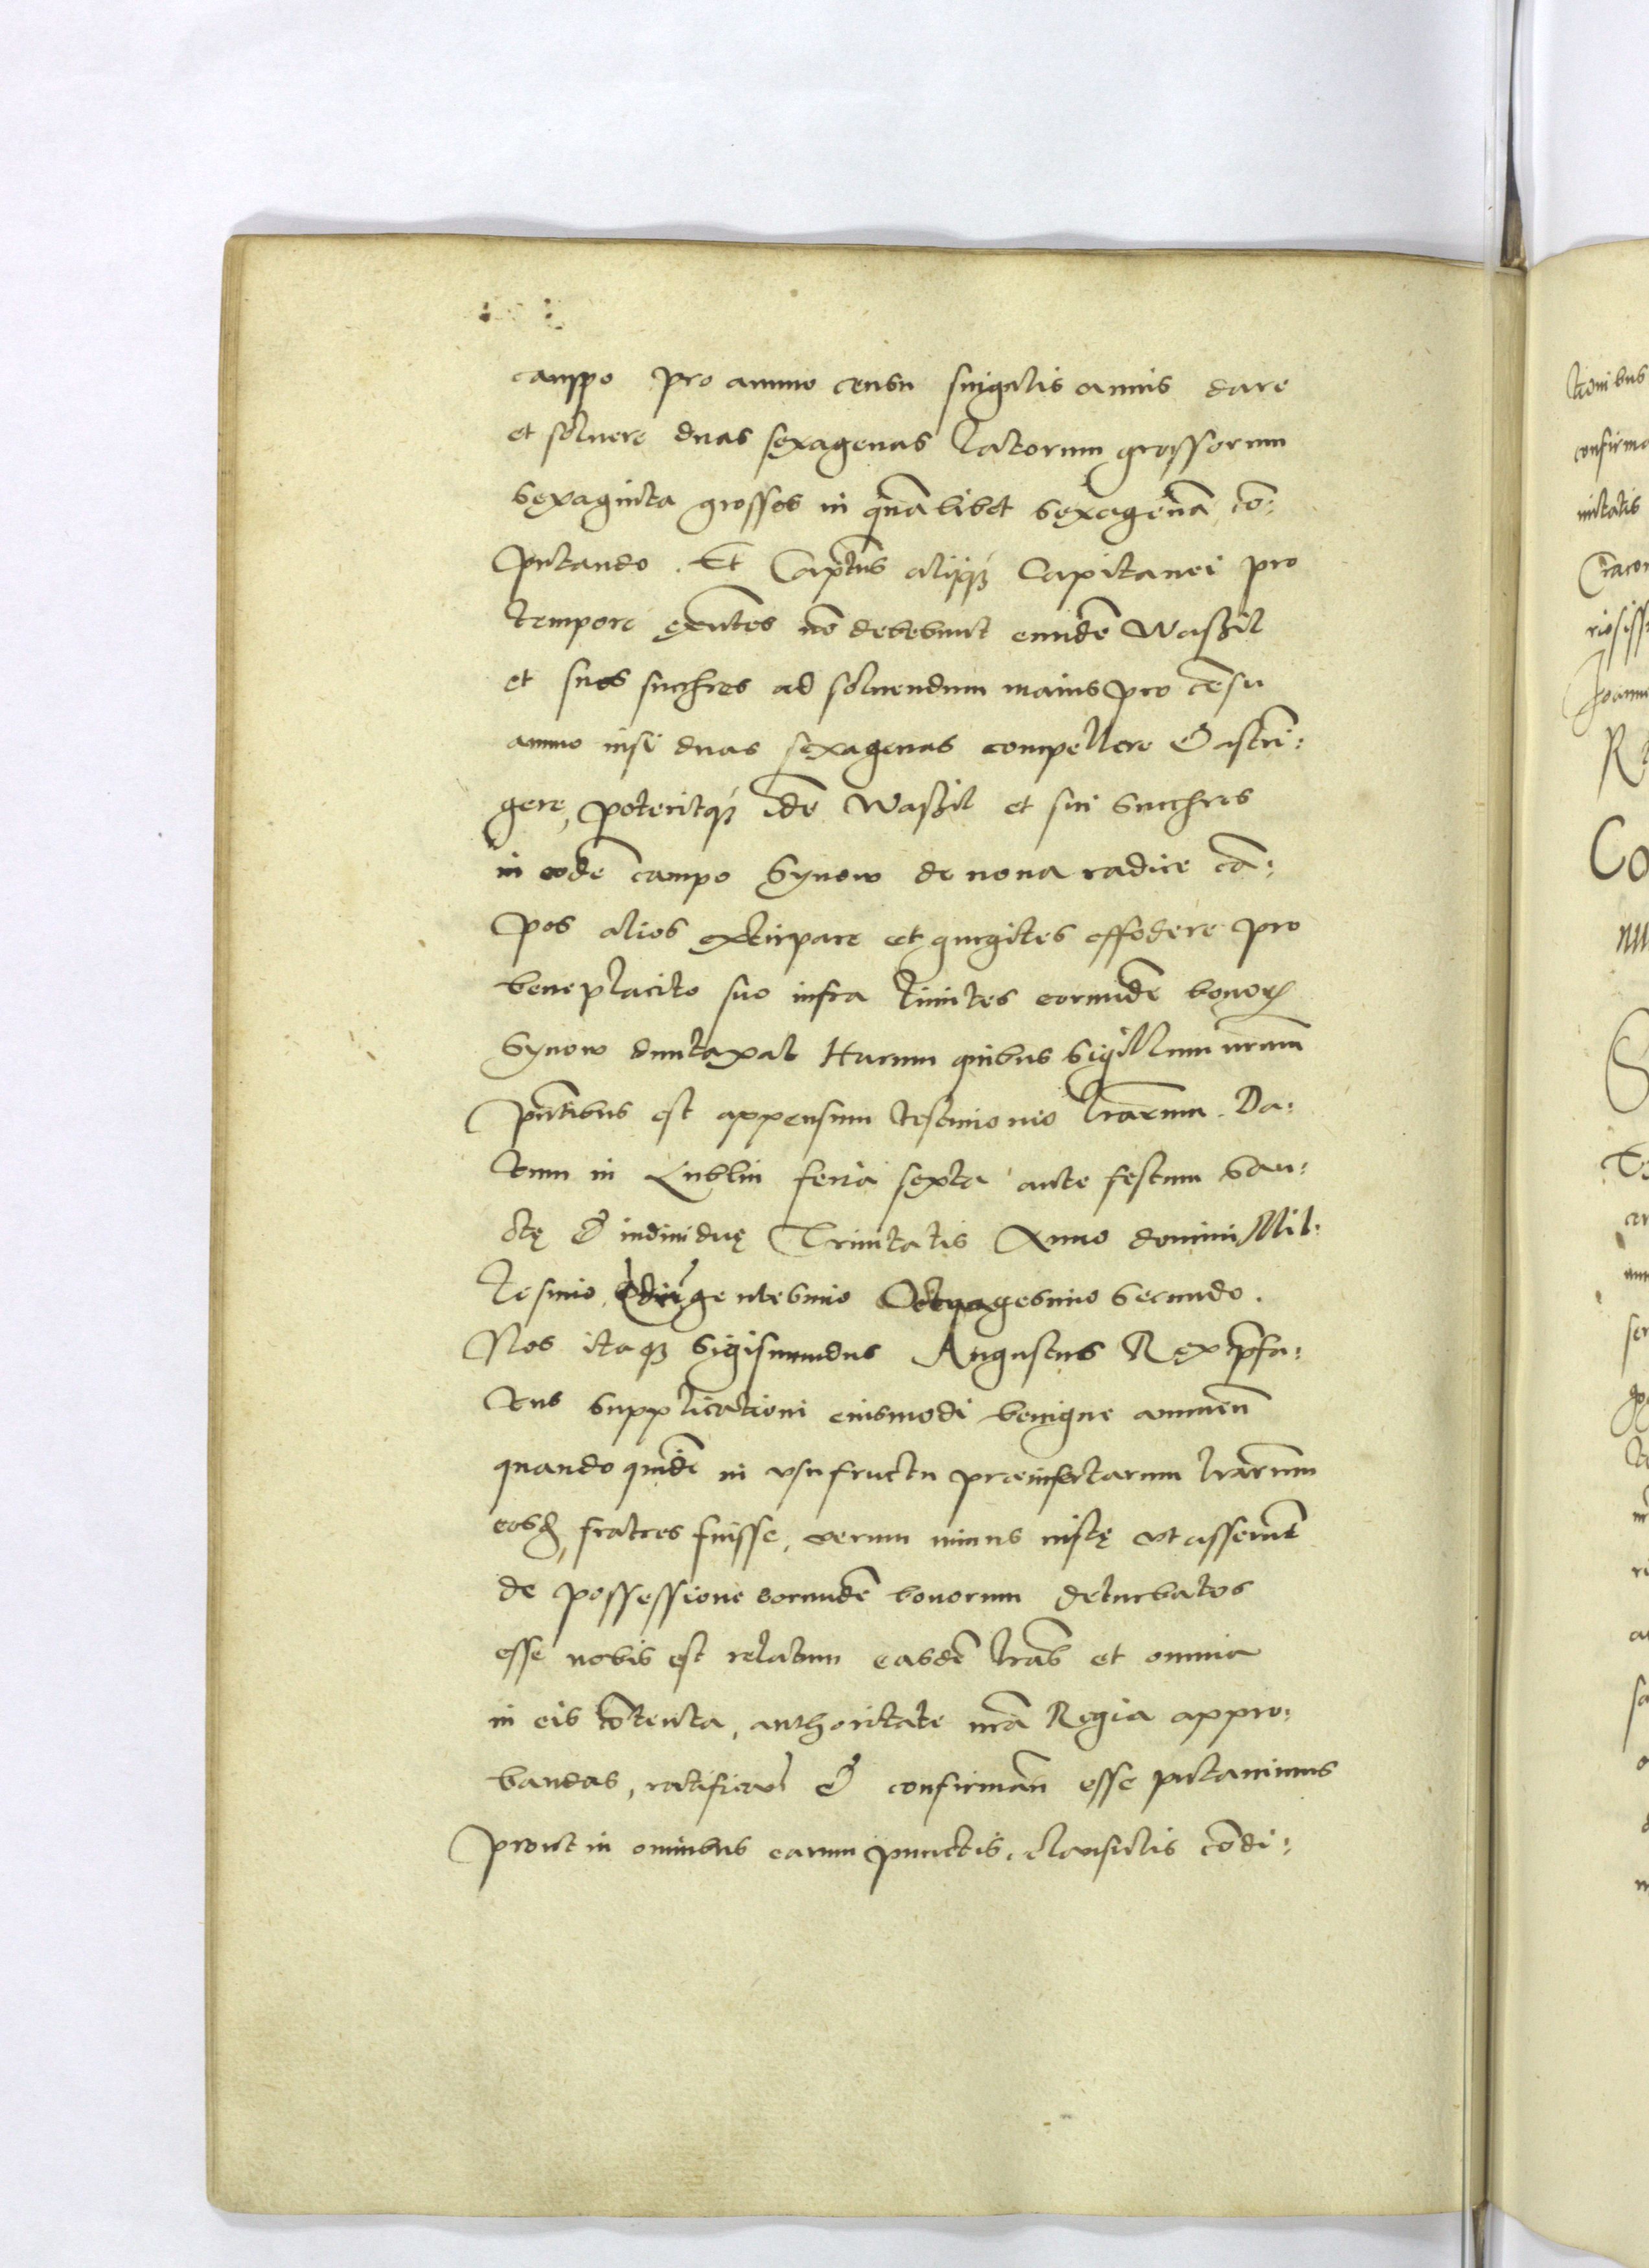 campo pro annuo censu singulis annis dare
et soluere duas sexagenas latorum grossorum
Sexaginta grossos in quãlibet Sexagenã cõ:
putando. Et Captus alijqꝫ Capitanei pro
tempore exntes nõ debebunt eundẽ Waszil
et suos succẽres ad soluendum maius pro cẽsu
annuo nisi duas sexagenas compellere & astrĩ:
gere, poteritqꝫ idẽ Waszil et sui Succẽres
in eodẽ campo Synow de noua radice cã:
pos alios extirpare et gurgites effodere pro
beneplacito suo infra limites eorundẽ bonoꝝ
Synow duntaxat Harum quibus Sigillum nrum
pñtibus est appensum testimonio lrarum. Da:
tum in Lublin feria sexta ante festum San:
ctę & indiuiduę Trinitatis Anno domini Mil:
lesimo gentesimo gesimo Secundo.
Nos itaqꝫ Sigismundus Augustus Rex pfa:
tus Supplicationi eiusmodi benigne annuen̄
quando quidẽ in vsufructu præinsertarum lrarum
eosdẽ fratres fuisse, verum minus iustę vt asserunt
de possessione eorundẽ bonorum deturbatos
esse nobis est relatum easdẽ lras et omnia
in eis cõtenta, authoritate nrã Regia appro:
bandas, ratifican̄ & confirman̄ esse putauimus
prout in omnibus earum punctis, clausulis cõdi: